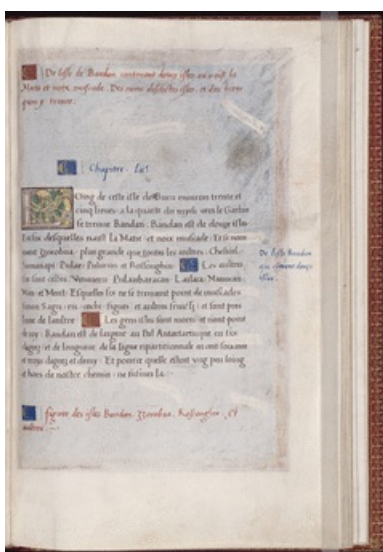 De lisle de Bandan contenant douze isles ou croist la
Matia et noix muscade. Des noms desdictes isles, et des biens
quon y trouve.
Chapitre. Lii
Loing de ceste isle de Buru environ trente et
cinq lieues a la quarte du mydi vers le Garbin
se treuve Bandan. Bandan est de douze isles
En six desquelles naist La Matia et noix muscade. Et se nom
ment zorobua plus grande que toutes les aultres. Chelicel.
Samianapi. Pulac. Puluruu et Rossoughin. Les aultres
six sont celles. Unuueru. Pulanbaracan. Lailaca. Manucan
Man et Meut. Esquelles ne se treuvent point de muscades
sinon Sagu riz cochi figues et aultres fruictz et sont pres
lune de laultre Les gens icy sont mores et nont point
de roy. Bandan est de latitude au Pol Antarctique en six
degrez et de longitude de la ligne repartitionnale en cent soixante
et trois degrez et demy. Et pource quelle estoit ung peu loing
et hors de nostre chemin ne fusmes la.
De lisle Bandan
qui contient douze
isles.
figure des isles Bandan. Zzorobua. Rossonghin. Et
aultres.